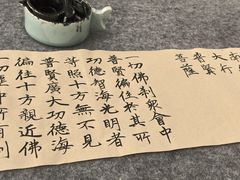 大行
普賢
菩薩
一切佛刹眾會中
普賢徧住於其所
功德智海光明者
等照十方無不見
普賢廣大功德海
徧往十方親近佛
一切塵中所有刹